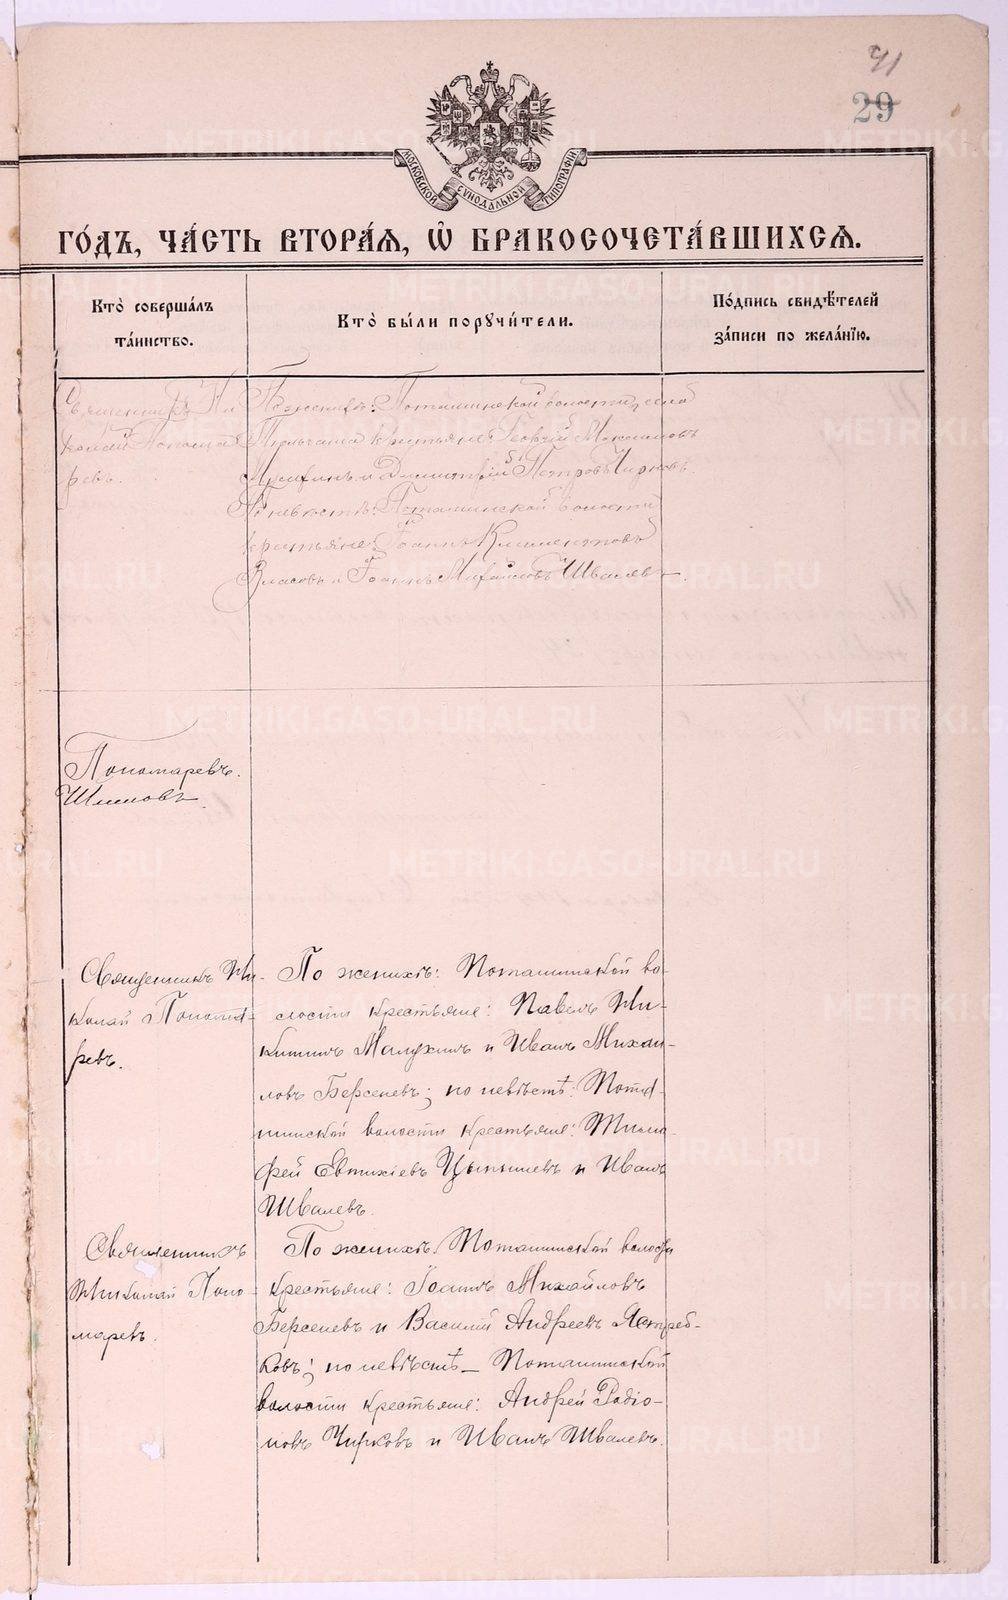 41
29
МОСКОВСКОЙ СѴНОДАЛЬНОЙ ТИПОГРАФІИ.
ГО́ДЪ, ЧА́СТЬ ВТОРА́Ѧ, Ѡ҆ БРАКОСОЧЕТА́ВШИХСѦ.
Кто̀ соверша́лъ
та́инство.
Кто̀ бы́ли порꙋчи́тели.
По́дпись свидѣ́телей
за́писи по жела́нїю.
Священникъ Ни
колай Понома
ревъ.
По женихѣ: Поташинской волости, села
крестьяне: Георгій Максимовъ
и Димитрій Петровъ Чирковъ.
По невѣстѣ: Поташинской волости
крестьяне: Іоаннъ Климентовъ
Власовъ и Іоаннъ Михайловъ Швалевъ.
Пономаревъ.
Шиловъ
Священникъ Ни-
колай Понома-
ревъ.
По женихѣ: Поташинской во-
лости крестьяне: Павелъ Ни-
китинъ Малухинъ и Иванъ Михаи-
ловъ Берсеневъ; по невѣстѣ: Пота-
шинской волости крестьяне: Тимо-
фей Евтихіевъ Цыпышевъ и Иванъ
Швалевъ.
Священникъ
Николай Поно-
маревъ.
По женихѣ: Поташинской волости
крестьяне: Іоаннъ Михайловъ
Берсеневъ и Василій Андреевъ Ястреб-
ковъ; по невѣстѣ – Поташинской
волости крестьяне: Андрей Родіо-
новъ Чирковъ и Иванъ Швалевъ.
METRIKI.GASO-URAL.RU